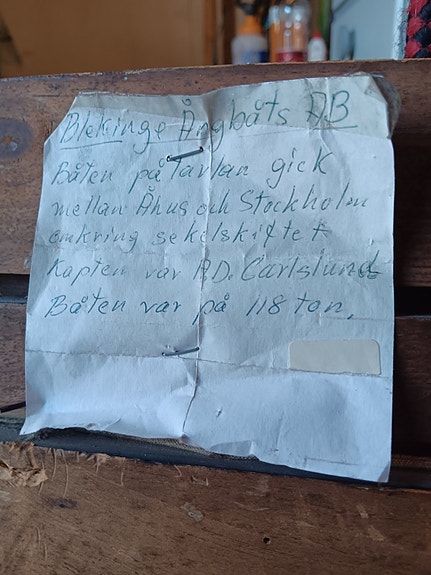 Blekinge Ångbåts AB
Båten på tavlan gick
mellan Åhus och Stockholm
omkring sekelskiftet
Kapten var A.D. Carlslund
Båten var på 118 ton.